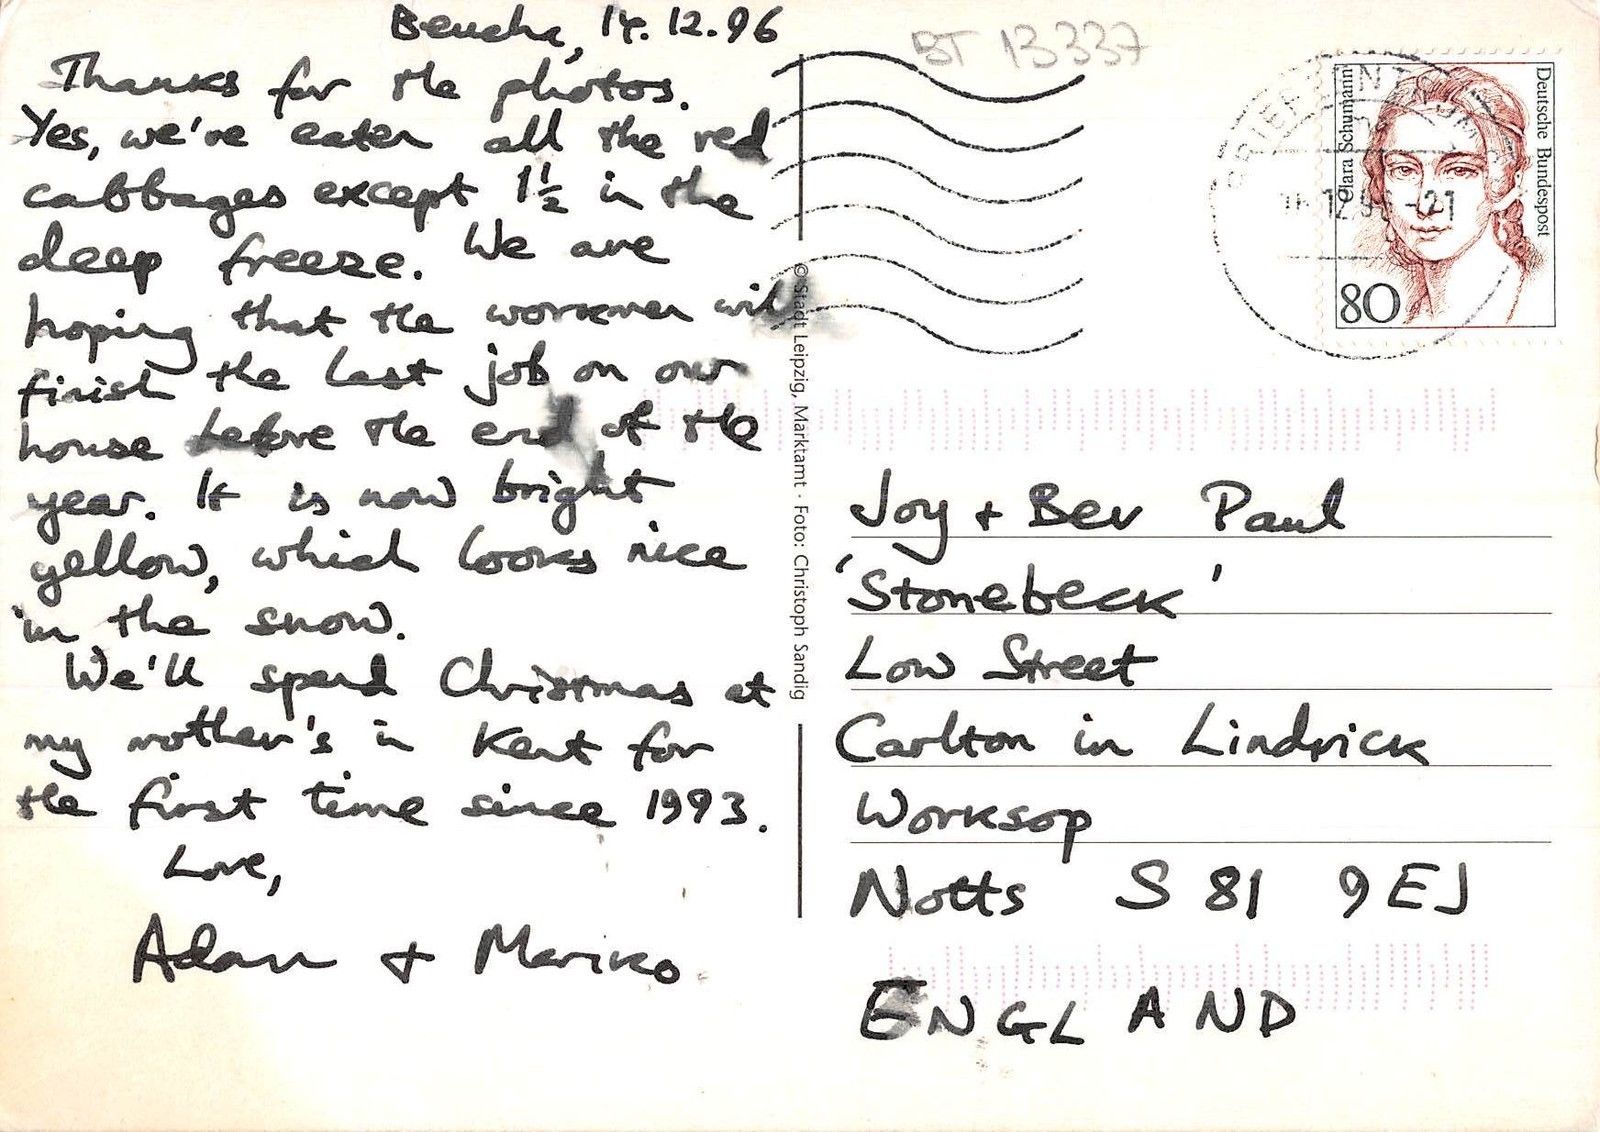 Beucha, 14.12.96
Thanks for the photos.
Yes, we've eaten all the red
cabbages except 1½ in the
deep freeze. We are
hoping that the workmen will
finish the last job on our
house before the end of the
year. It is now bright
yellow, which looks nice
in the snow.
We'll spend Christmas at
my mother's in Kent for
the first time since 1993.
Love,
Adam + Mariko
© Stadt Leipzig, Marktamt · Foto: Christoph Sandig
BT 13337
BRIEFZENTRUM
-21
Clara Schumann
Deutsche Bundespost
80
Joy + Bev Paul
'Stonebeck'
Low Street
Carlton in Lindrick
Worksop
Notts S81 9EJ
ENGLAND